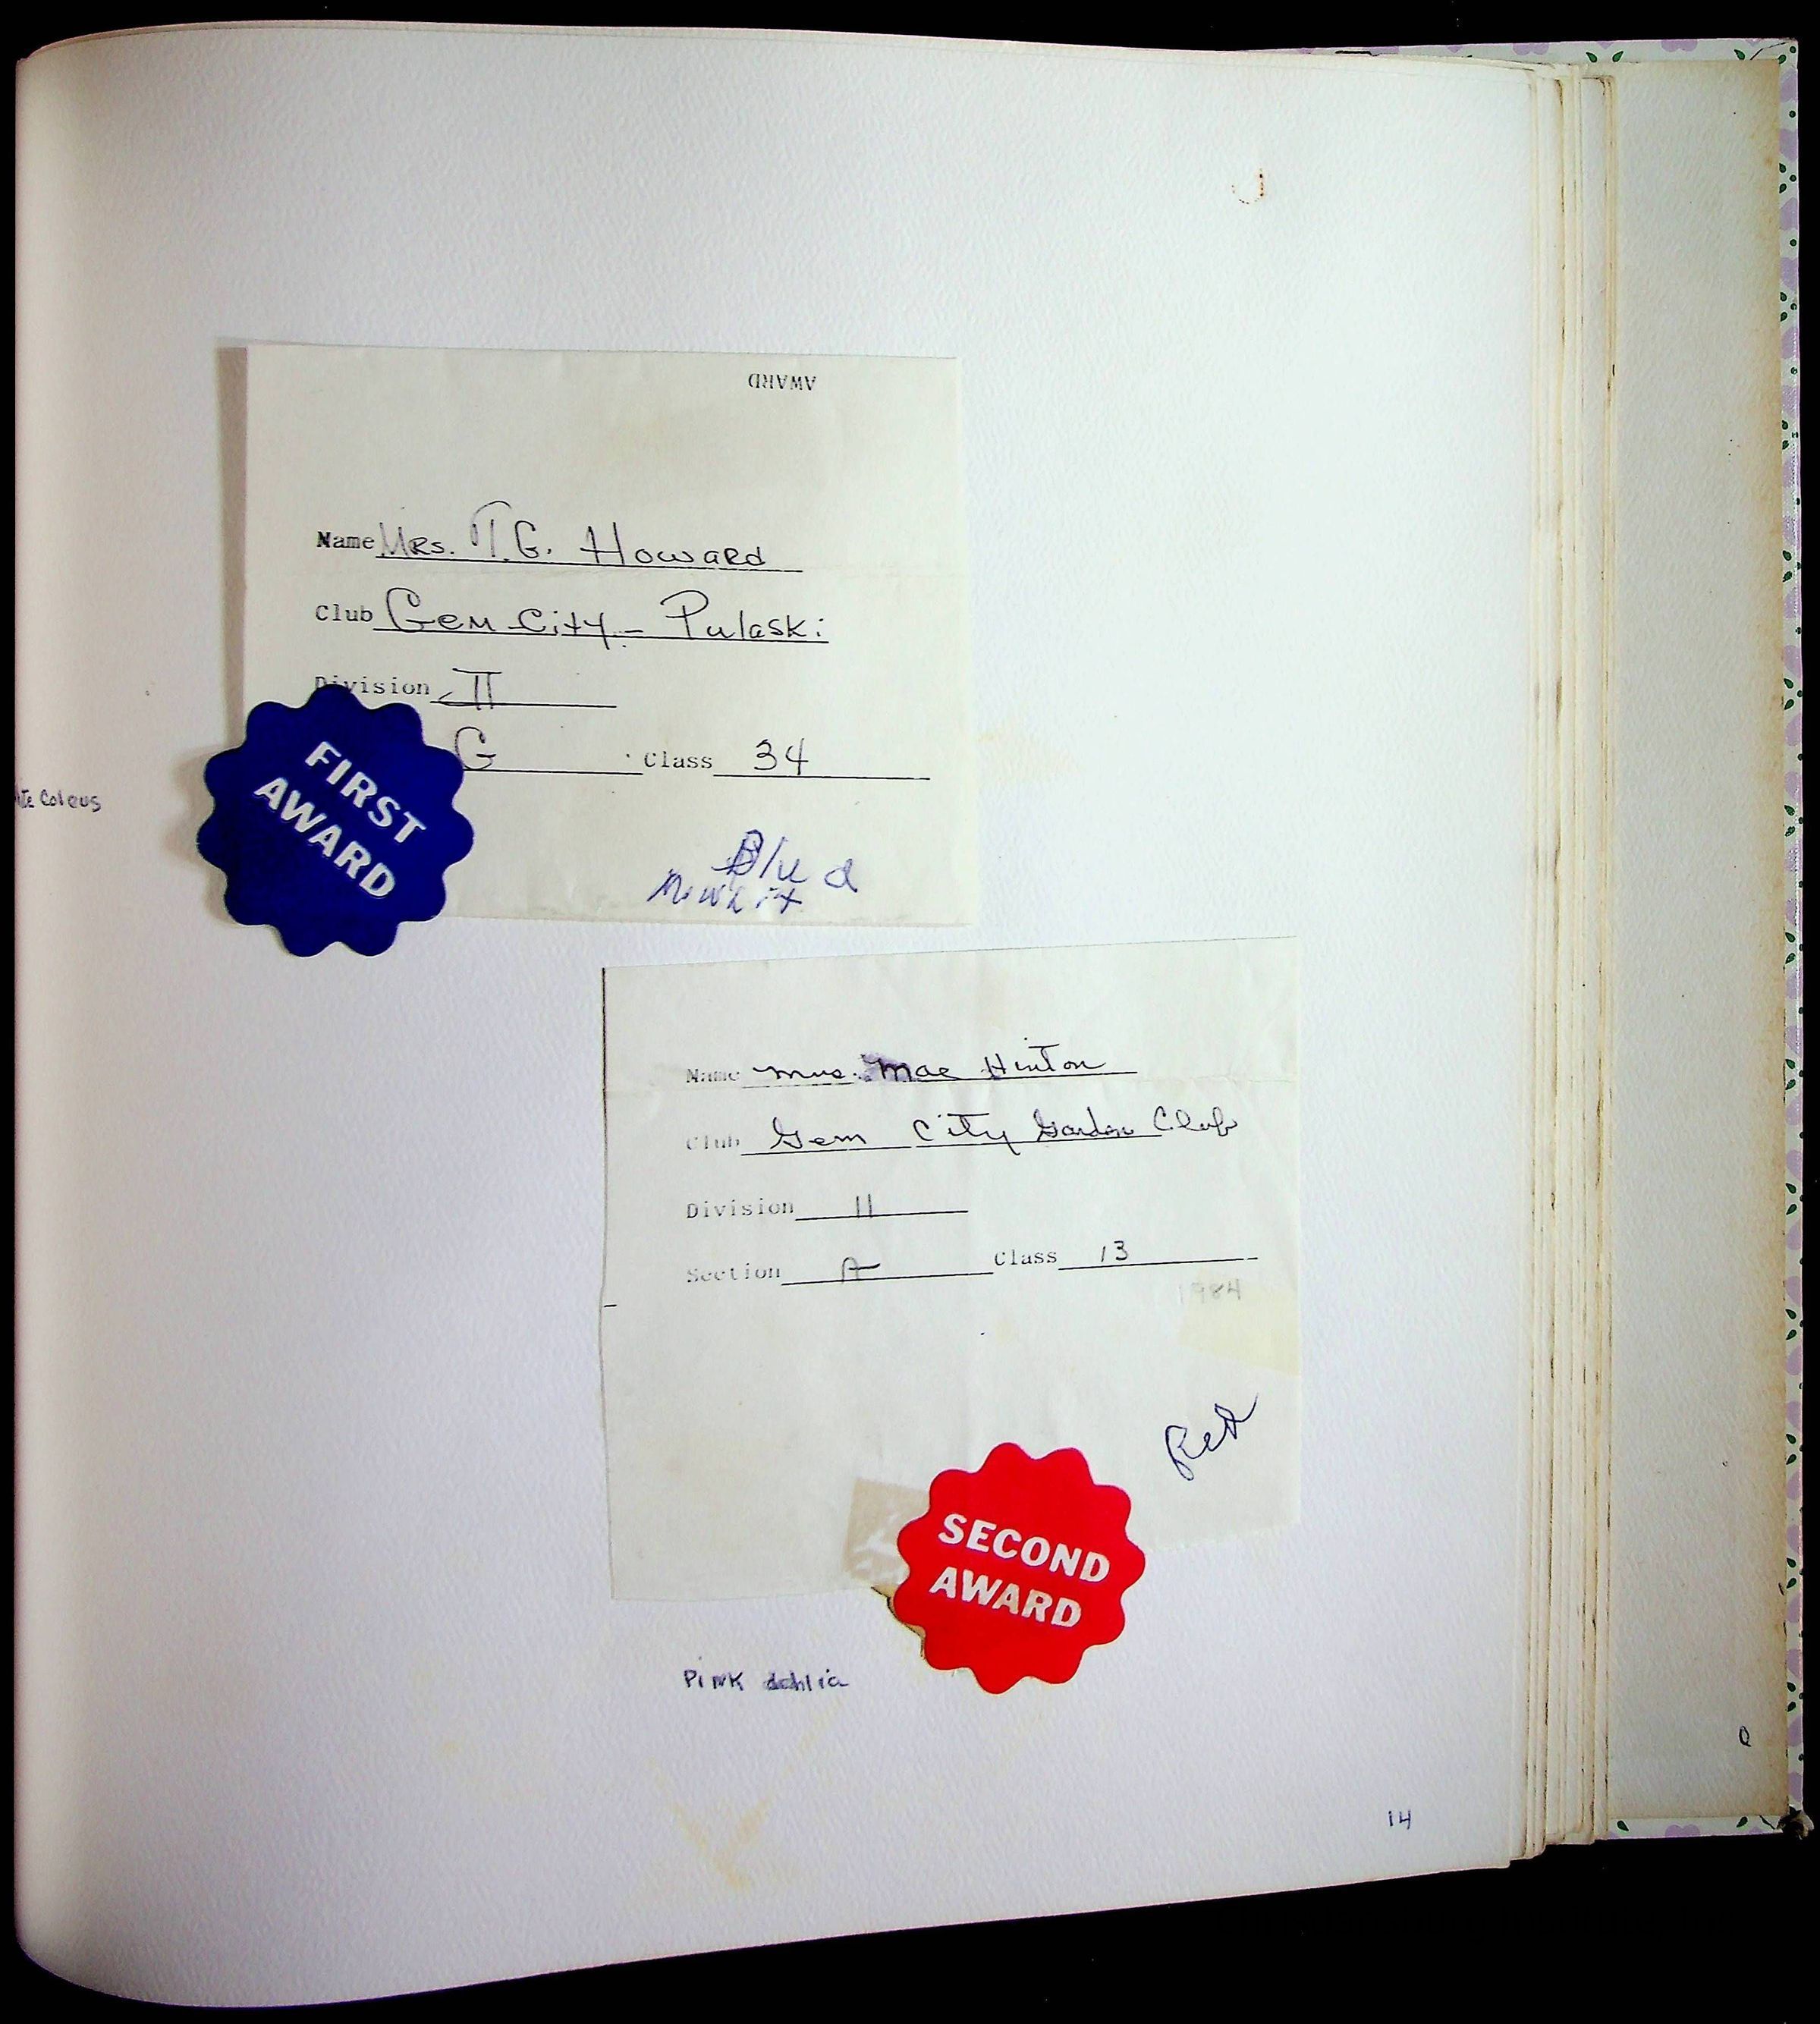 AWARD
Name Mrs. T. G. Howard
Club Gem City - Pulaski
Division II
G Class 34
Coleus
FIRST
AWARD
Blue
Name Mrs. Mae Hinton
Club Gem City Garden Club
Division II
Section A Class 13
1984
Red
SECOND
AWARD
Pink dahlia
14